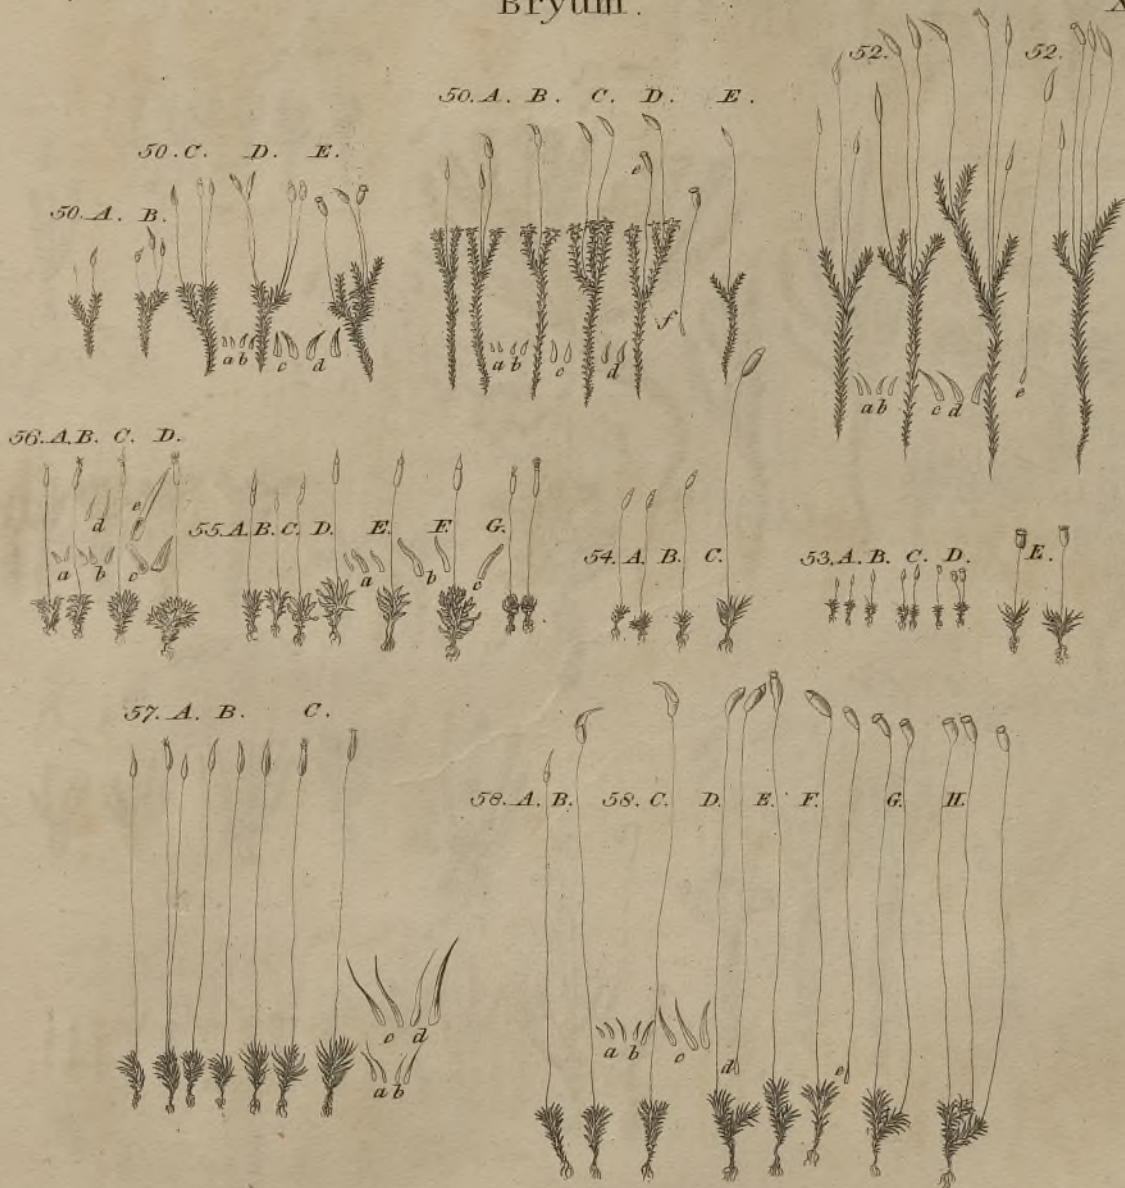 Bryum.
X
50. A. B. C. D. E.
50. C. D. E.
50. A. B.
52. 52.
e
f
a b c d
a b c d
a b c d
e
56. A. B. C. D.
e
d
a b c
55. A. B. C. D. E. F. G.
a b c
54. A. B. C.
53. A. B. C. D. E.
57. A. B. C.
c d
a b
58. A. B. 58. C. D. E. F. G. H.
a b c
d e